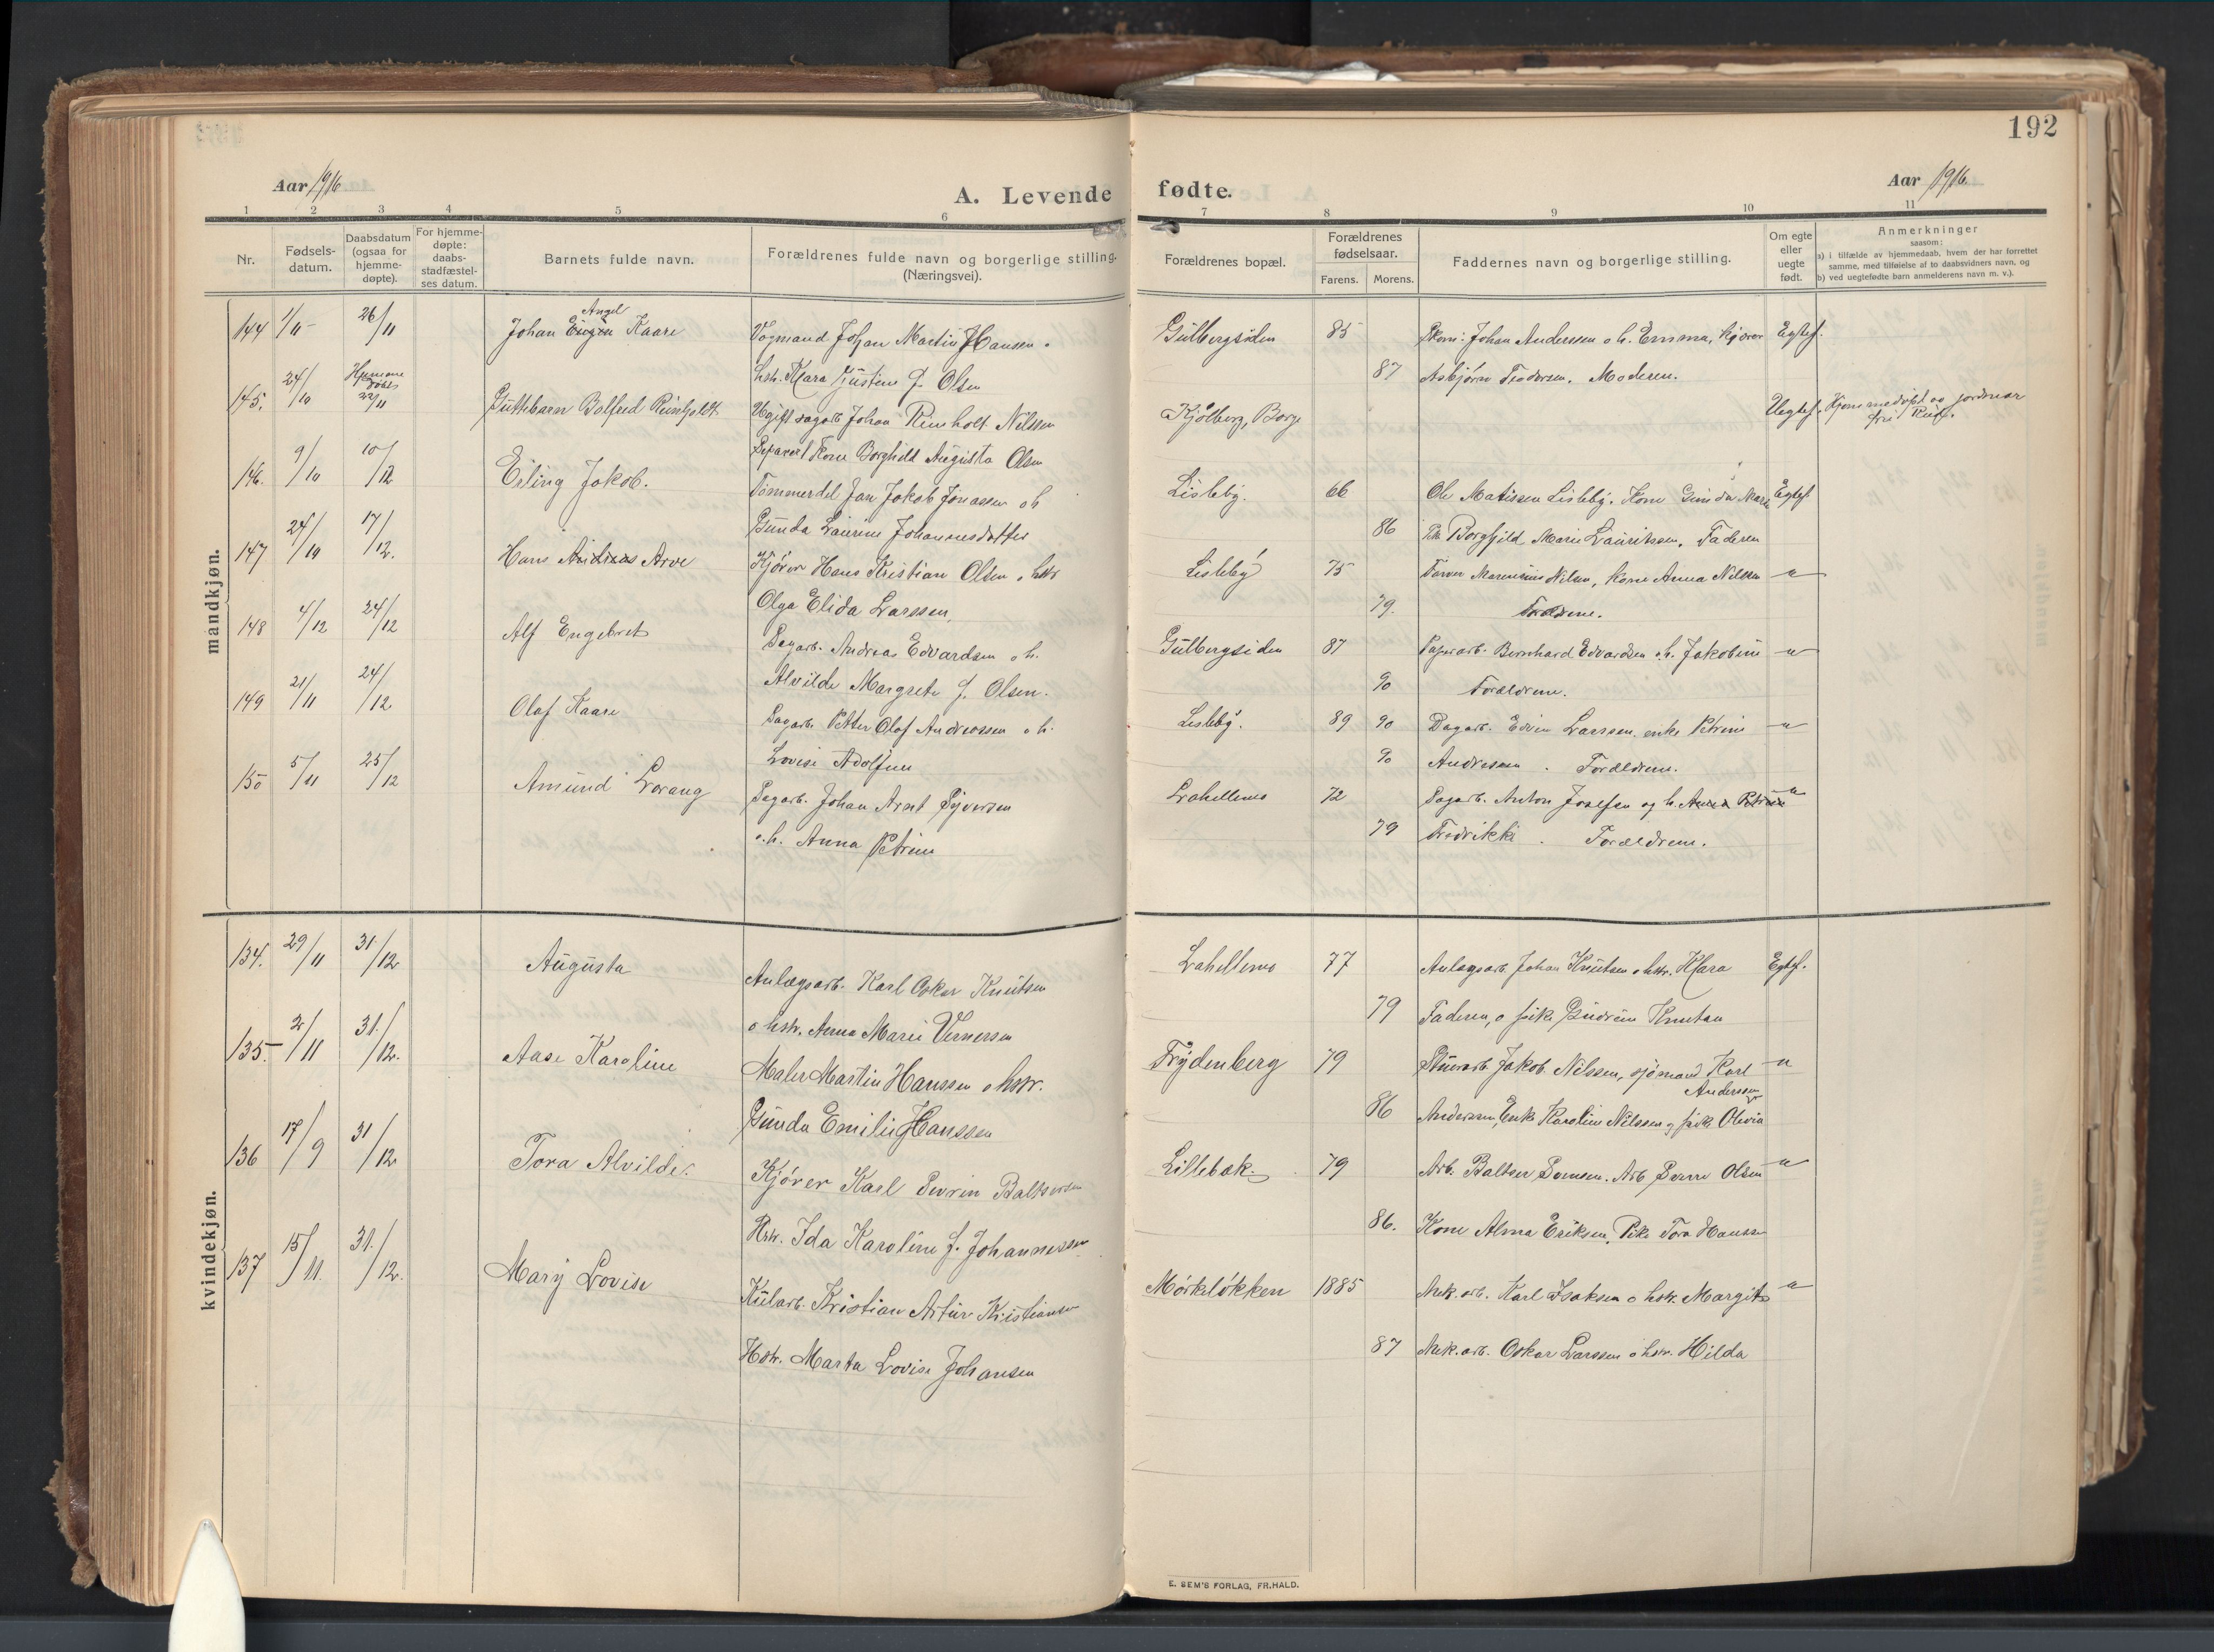 192
Aar 1916
A. Levende fødte.
Aar 1916
1 2 3 4 5 6 7 8 9 10 11
Nr.
Fødsels-
datum.
Daabsdatum
(ogsaa for
hjemme-
døpte).
For hjemme-
døpte:
daabs-
stadfæstel-
ses datum.
Barnets fulde navn.
Forældrenes fulde navn og borgerlige stilling.
(Næringsvei).
Forældrenes bopæl.
Forældrenes
fødselsaar.
Farens. Morens.
Faddernes navn og borgerlige stilling.
Om egte
eller
uegte
født.
Anmerkninger
saasom:
a) i tilfælde av hjemmedaab, hvem der har forrettet
samme, med tilføielse af to daabsvidners navn, og
b) ved uegtefødte barn anmelderens navn m. v.).
mandkjøn.
Angel
144 1/11 26/11 Johan Eugen Kaare Vognmand Johan Martin Hansen o Gulbergsiden 85 Johan Anderssen o h. Emma, kjører Egtef.
hstr. Klara Justine f. Olsen 87 Asbjørn Teodorsen. Moderen.
145. 24/10 Hjemme døbt 22/11 Guttebarn Bolfred Reinholdt Ugift sagarb Johan Reinholt Nilssen Kjølberg, Borge Uegtef. Hjemmedøpt av jordmor
fru
Separert Kone Borghild Augusta Olsen
146. 9/10 10/12 Erling Jakob. Tømmerdel Jan Jakob Jonassen o h Lisleby. 66 Ole Matissen Lisleby. Kone Gunda Marie Egtef.
Gunda Laurine Johannesdatter 86 Borghild Marie Lauritssen. Faderen
147 24/10 17/12. Hans Andreas Arve Kjører Hans Kristian Olsen o hstr Lisleby 75 Marensius Nilsen, kone Anna Nilsen —"—
Olga Elida Larssen, 79. Forældrene.
148 4/12 24/12 Alf Engebret Sagarb. Andreas Edvardsen o h. Gulbergsiden 87 Papirarb. Bernhard Edvardsen o h. Jakobine —"—
Alvilde Margrete f. Olsen. 90 Forældrene.
149 21/11 24/12 Olaf Kaare Sagarb. Petter Olaf Andreassen o h. Lisleby. 89 90 Dagarb. Edvin Larssen. enke Petrine —"—
Lovise Adolfine 90 Andresen. Forældrene.
150 5/11 25/12 Amund Lorang Sagarb. Johan Arnt Syversen Lahellemo 72 Sagarb. Anton Josefsen og h. Anna Petrine —"—
o.h. Anna Petrine 79 Fredrikke. Forældrene.
kvindekjøn.
134. 29/11 31/12 Augusta Anlægsarb. Karl Oskar Knutsen Lahellemo 77 Anlægsarb Johan Knutsen o hstr. Klara Egtef.
o hstr. Anna Marie Vernersen 79 Faderen, o pike Gudrun Knutsen
135. 2/11 31/12. Aase Karoline Maler Martin Hanssen o hstr. Frydenberg 79 Jakob Nilssen, sjømand Karl —"—
Anderssen
Gunda Emilie Hanssen 86 Anderssen, Enke Karoline Nilssen og pik. Olivia
136 17/9 31/12 Tora Alvilde. Kjører Karl Severin Baltsersen Lillebæk. 79 Arb. Baltser Arb Sverre Olsen —"—
Hstr. Ida Karoline f. Johannessen 86. Kone Alma Eriksen, Pike Tora Hansen
137 15/11. 31./12. Mary Lovise Kularb. Kristian Artur Kristiansen Mørkløkken 1885 Mek. arb. Karl Isaksen o hstr. Margit —"—
Hstr. Marta Lovise Johansen 87 Mek. arb. Oskar Larssen o hstr. Hilda
E. SEM'S FORLAG, FR.HALD.